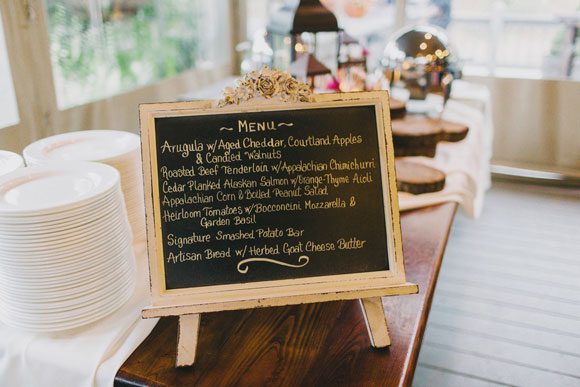 ~ Menu ~
Arugula w/Aged Cheddar, Courtland Apples
& Candied Walnuts
Roasted Beef Tenderloin w/Appalachian Chimichurri
Cedar Planked Alaskan Salmon w/Orange-Thyme Aioli
Appalachian Corn & Boiled Peanut Salad
Heirloom Tomatoes w/Bocconcini Mozzarella &
Garden Basil
Signature Smashed Potato Bar
Artisan Bread w/Herbed Goat Cheese Butter